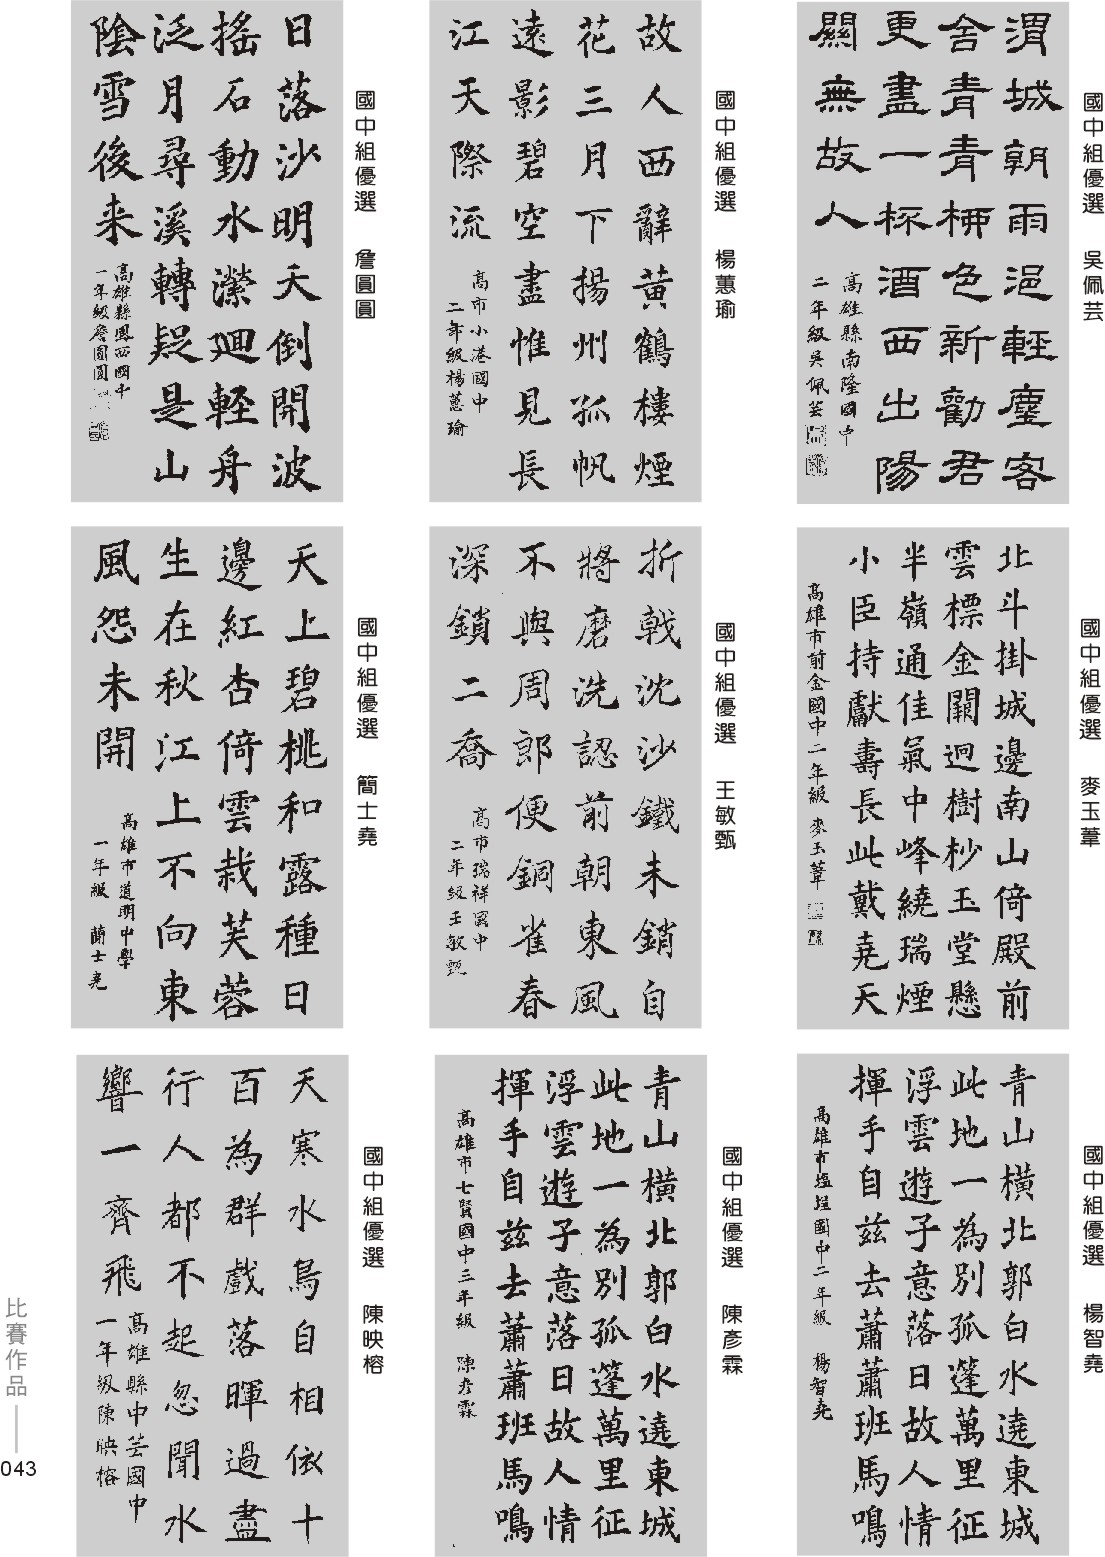 國中組優選 吳佩芸
渭城朝雨浥輕塵客
舍青青柳色新勸君
更盡一杯酒西出陽
關無故人
高雄縣南隆國中
二年級吳佩芸
國中組優選 楊蕙瑜
故人西辭黃鶴樓煙
花三月下揚州孤帆
遠影碧空盡惟見長
江天際流
高市小港國中
二年級楊蕙瑜
國中組優選 詹圓圓
日落沙明天倒開波
搖石動水瀠廻輕舟
泛月尋溪轉疑是山
陰雪後来
高雄縣鳳西國中
一年級詹圓圓
國中組優選 麥玉葦
北斗掛城邊南山倚殿前
雲標金闕迥樹杪玉堂懸
半嶺通佳氣中峰繞瑞煙
小臣持獻壽長此戴堯天
高雄市前金國中二年級 麥玉葦
國中組優選 王敏甄
折戟沈沙鐵未銷自
將磨洗認前朝東風
不與周郎便銅雀春
深鎖二喬
高市瑞祥國中
二年級王敏甄
國中組優選 簡士堯
天上碧桃和露種日
邊紅杏倚雲栽芙蓉
生在秋江上不向東
風怨未開
高雄市道明中學
一年級 簡士堯
國中組優選 楊智堯
青山橫北郭白水遶東城
此地一為別孤蓬萬里征
浮雲遊子意落日故人情
揮手自茲去蕭蕭班馬鳴
高雄市塩埕國中二年級 楊智堯
國中組優選 陳彥霖
青山橫北郭白水遶東城
此地一為別孤蓬萬里征
浮雲遊子意落日故人情
揮手自茲去蕭蕭班馬鳴
高雄市七賢國中三年級 陳彥霖
國中組優選 陳映榕
天寒水鳥自相依十
百為群戲落暉過盡
行人都不起忽聞水
響一齊飛
高雄縣中芸國中
一年級陳映榕
比賽作品
043